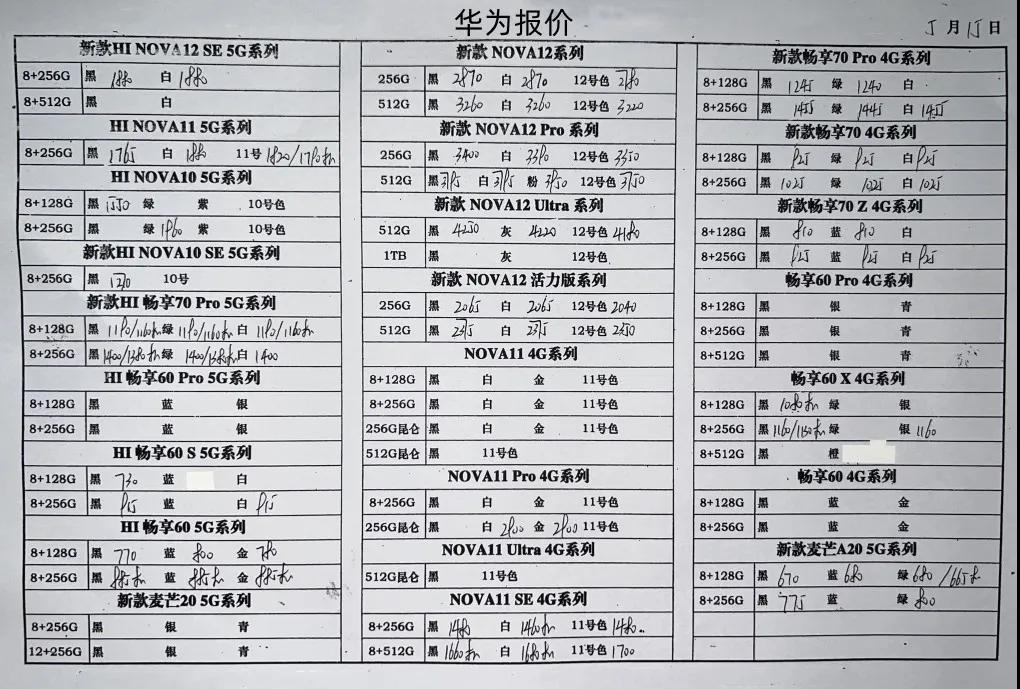 华为报价
5月15日
新款HI NOVA12 SE 5G系列
8+256G 黑 1880 白 1880
8+512G 黑 白
HI NOVA11 5G系列
8+256G 黑 1765 白 1880 11号 1820/1790
HI NOVA10 5G系列
8+128G 黑 1550 绿 紫 10号色
8+256G 黑 绿 1960 紫 10号色
新款HI NOVA10 SE 5G系列
8+256G 黑 10号
新款HI 畅享70 Pro 5G系列
8+128G 黑 1190/1160 绿 1190/1160 白 1190/1160
8+256G 黑 1400/1380 绿 1400/1380 白 1400
HI 畅享60 Pro 5G系列
8+128G 黑 蓝 银
8+256G 黑 蓝 银
HI 畅享60 S 5G系列
8+128G 黑 730 蓝 白
8+256G 黑 915 蓝 白 915
HI 畅享60 5G系列
8+128G 黑 770 蓝 800 金 780
8+256G 黑 885 蓝 885 金 885
新款麦芒20 5G系列
8+256G 黑 银 青
12+256G 黑 银 青
新款 NOVA12系列
256G 黑 2870 白 2870 12号色 2780
512G 黑 3260 白 3260 12号色 3220
新款 NOVA12 Pro 系列
256G 黑 3400 白 3390 12号色 3350
512G 黑 白 粉 12号色
新款 NOVA12 Ultra 系列
512G 黑 4250 灰 4220 12号色 4180
1TB 黑 灰 12号色
新款 NOVA12 活力版系列
256G 黑 2065 白 2065 12号色 2040
512G 黑 2375 白 2375 12号色 2350
NOVA11 4G系列
8+128G 黑 白 金 11号色
8+256G 黑 白 金 11号色
256G昆仑 黑 白 金 11号色
512G昆仑 黑 11号色
NOVA11 Pro 4G系列
8+256G 黑 白 金 11号色
256G昆仑 黑 白 2800 金 2800 11号色
NOVA11 Ultra 4G系列
512G昆仑 黑 11号色
NOVA11 SE 4G系列
8+256G 黑 1480 白 1460 11号色 1480
8+512G 黑 1660 白 1680 11号色 1700
新款畅享70 Pro 4G系列
8+128G 黑 1245 绿 1240 白
8+256G 黑 1455 绿 1445 白 1455
新款畅享70 4G系列
8+128G 黑 925 绿 925 白 925
8+256G 黑 1025 绿 1025 白 1025
新款畅享70 Z 4G系列
8+128G 黑 810 蓝 810 白
8+256G 黑 925 蓝 925 白 925
畅享60 Pro 4G系列
8+128G 黑 银 青
8+256G 黑 银 青
8+512G 黑 银 青
畅享60 X 4G系列
8+128G 黑 1080 绿 银
8+256G 黑 1160/1150 绿 银 1160
8+512G 黑 橙
畅享60 4G系列
8+128G 黑 蓝 金
8+256G 黑 蓝 金
新款麦芒A20 5G系列
8+128G 黑 670 蓝 680 绿 680/665
8+256G 黑 775 蓝 绿 800